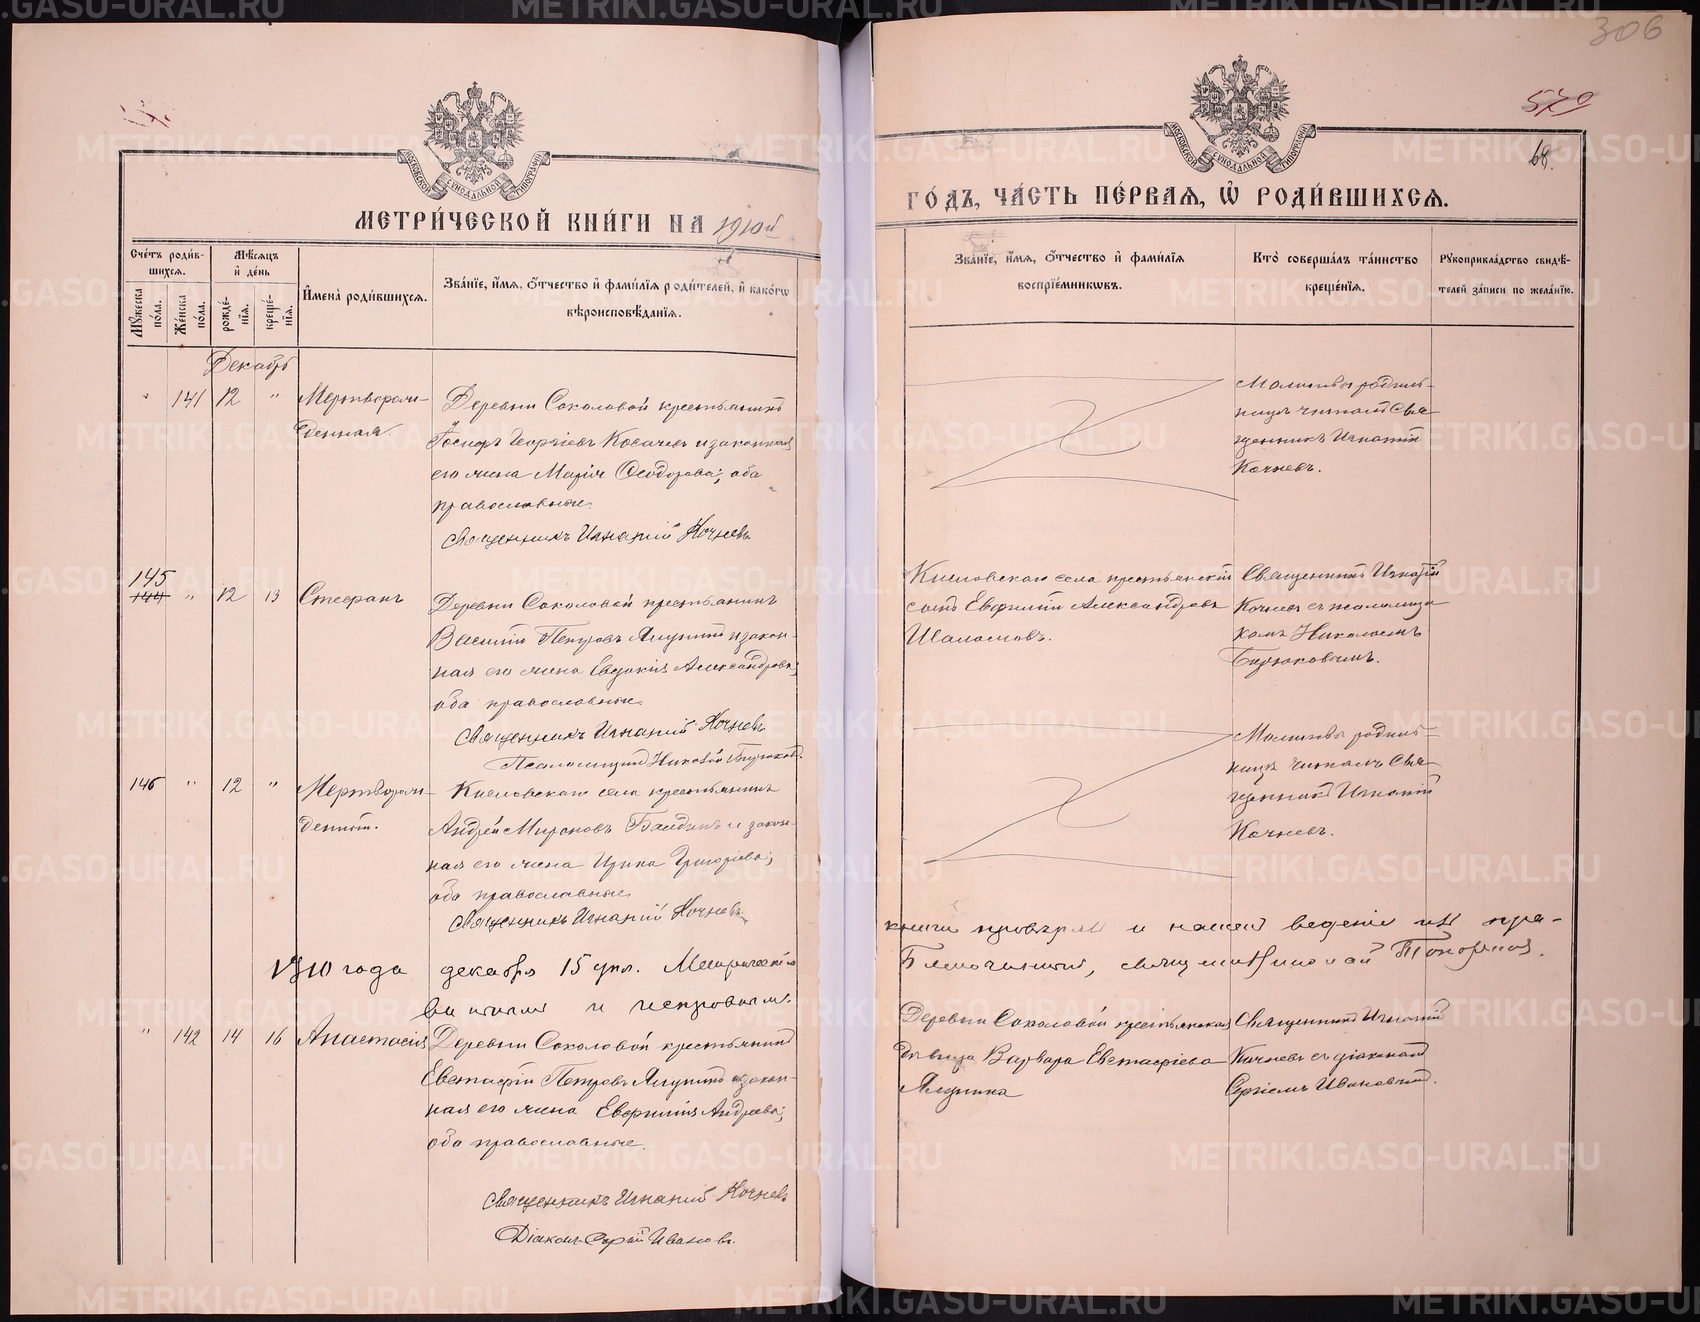 306
579
68.
МЕТРИ́ЧЕСКОЙ КНИ́ГИ НА 1910й
ГО́ДЪ, ЧА́СТЬ ПЕ́РВАЯ, Ѡ҆ РОДИ́ВШИХСѦ.
Сче́тъ роди́в-
шихсѧ.
Мꙋ́жеска по́ла.
Же́нска по́ла.
Мѣ́сѧцъ
и҆ де́нь
рожде́-
нїѧ.
креще́-
нїѧ.
И҆мена̀ роди́вшихсѧ.
Зва́нїе, и҆́мѧ, ѻ҆́тчество и҆ фами́лїѧ роди́телей, и҆ како́гѡ
вѣроисповѣ́данїѧ.
Зва́нїе, и҆́мѧ, ѻ҆́тчество и҆ фами́лїѧ
воспрїе́мникѡвъ.
Кто̀ соверша́лъ та́инство
креще́нїѧ.
Рꙋкоприкла́дство свидѣ́-
телей за́писи по жела́нїю.
Декабрь
" 141 12 " Мертворож-
денная.
Деревни Соколовой крестьянинъ
Георгіевъ Косачевъ и законная
его жена Марія Ѳеодорова; оба
православные.
Священникъ Игнатій Кочневъ
Молитвы родиль-
ницѣ читалъ Свя-
щенникъ Игнатій
Кочневъ.
145
144 " 12 13 Стефанъ
Деревни Соколовой крестьянинъ
Василій Петровъ Ялунинъ и закон-
ная его жена Евдокія Александрова;
оба православные.
Священникъ Игнатій Кочневъ
Псаломщикъ Николай Бирюковъ.
крестьянскій
сынъ Евфимій Александровъ
Шаламовъ.
Священникъ Игнатій
Кочневъ съ псаломщи-
комъ Николаемъ
Бирюковымъ.
146 " 12 " Мертворож-
денный.
села крестьянинъ
Андрей Мироновъ и закон-
ная его жена Ирина Григоріева;
оба православные.
Священникъ Игнатій Кочневъ
Молитвы родиль-
ницѣ читалъ Свя-
щенникъ Игнатій
Кочневъ.
1910 года декабря 15 дня. Метрическія
книги провѣрялъ и нашелъ веденіе ихъ пра-
вильнымъ и исправнымъ.
Благочинный, священникъ Николай Топорковъ.
" 142 14 16 Анастасія
Деревни Соколовой крестьянинъ
Евстафій Петровъ Ялунинъ и закон-
ная его жена Евфимія Андреева;
оба православные.
Священникъ Игнатій Кочневъ
Діаконъ Сергій Ивановъ.
Деревни Соколовой крестьянская
дѣвица Варвара Евстафіева
Ялунина
Священникъ Игнатій
Кочневъ съ діакономъ
Сергіемъ Ивановымъ.
METRIKI.GASO-URAL.RU